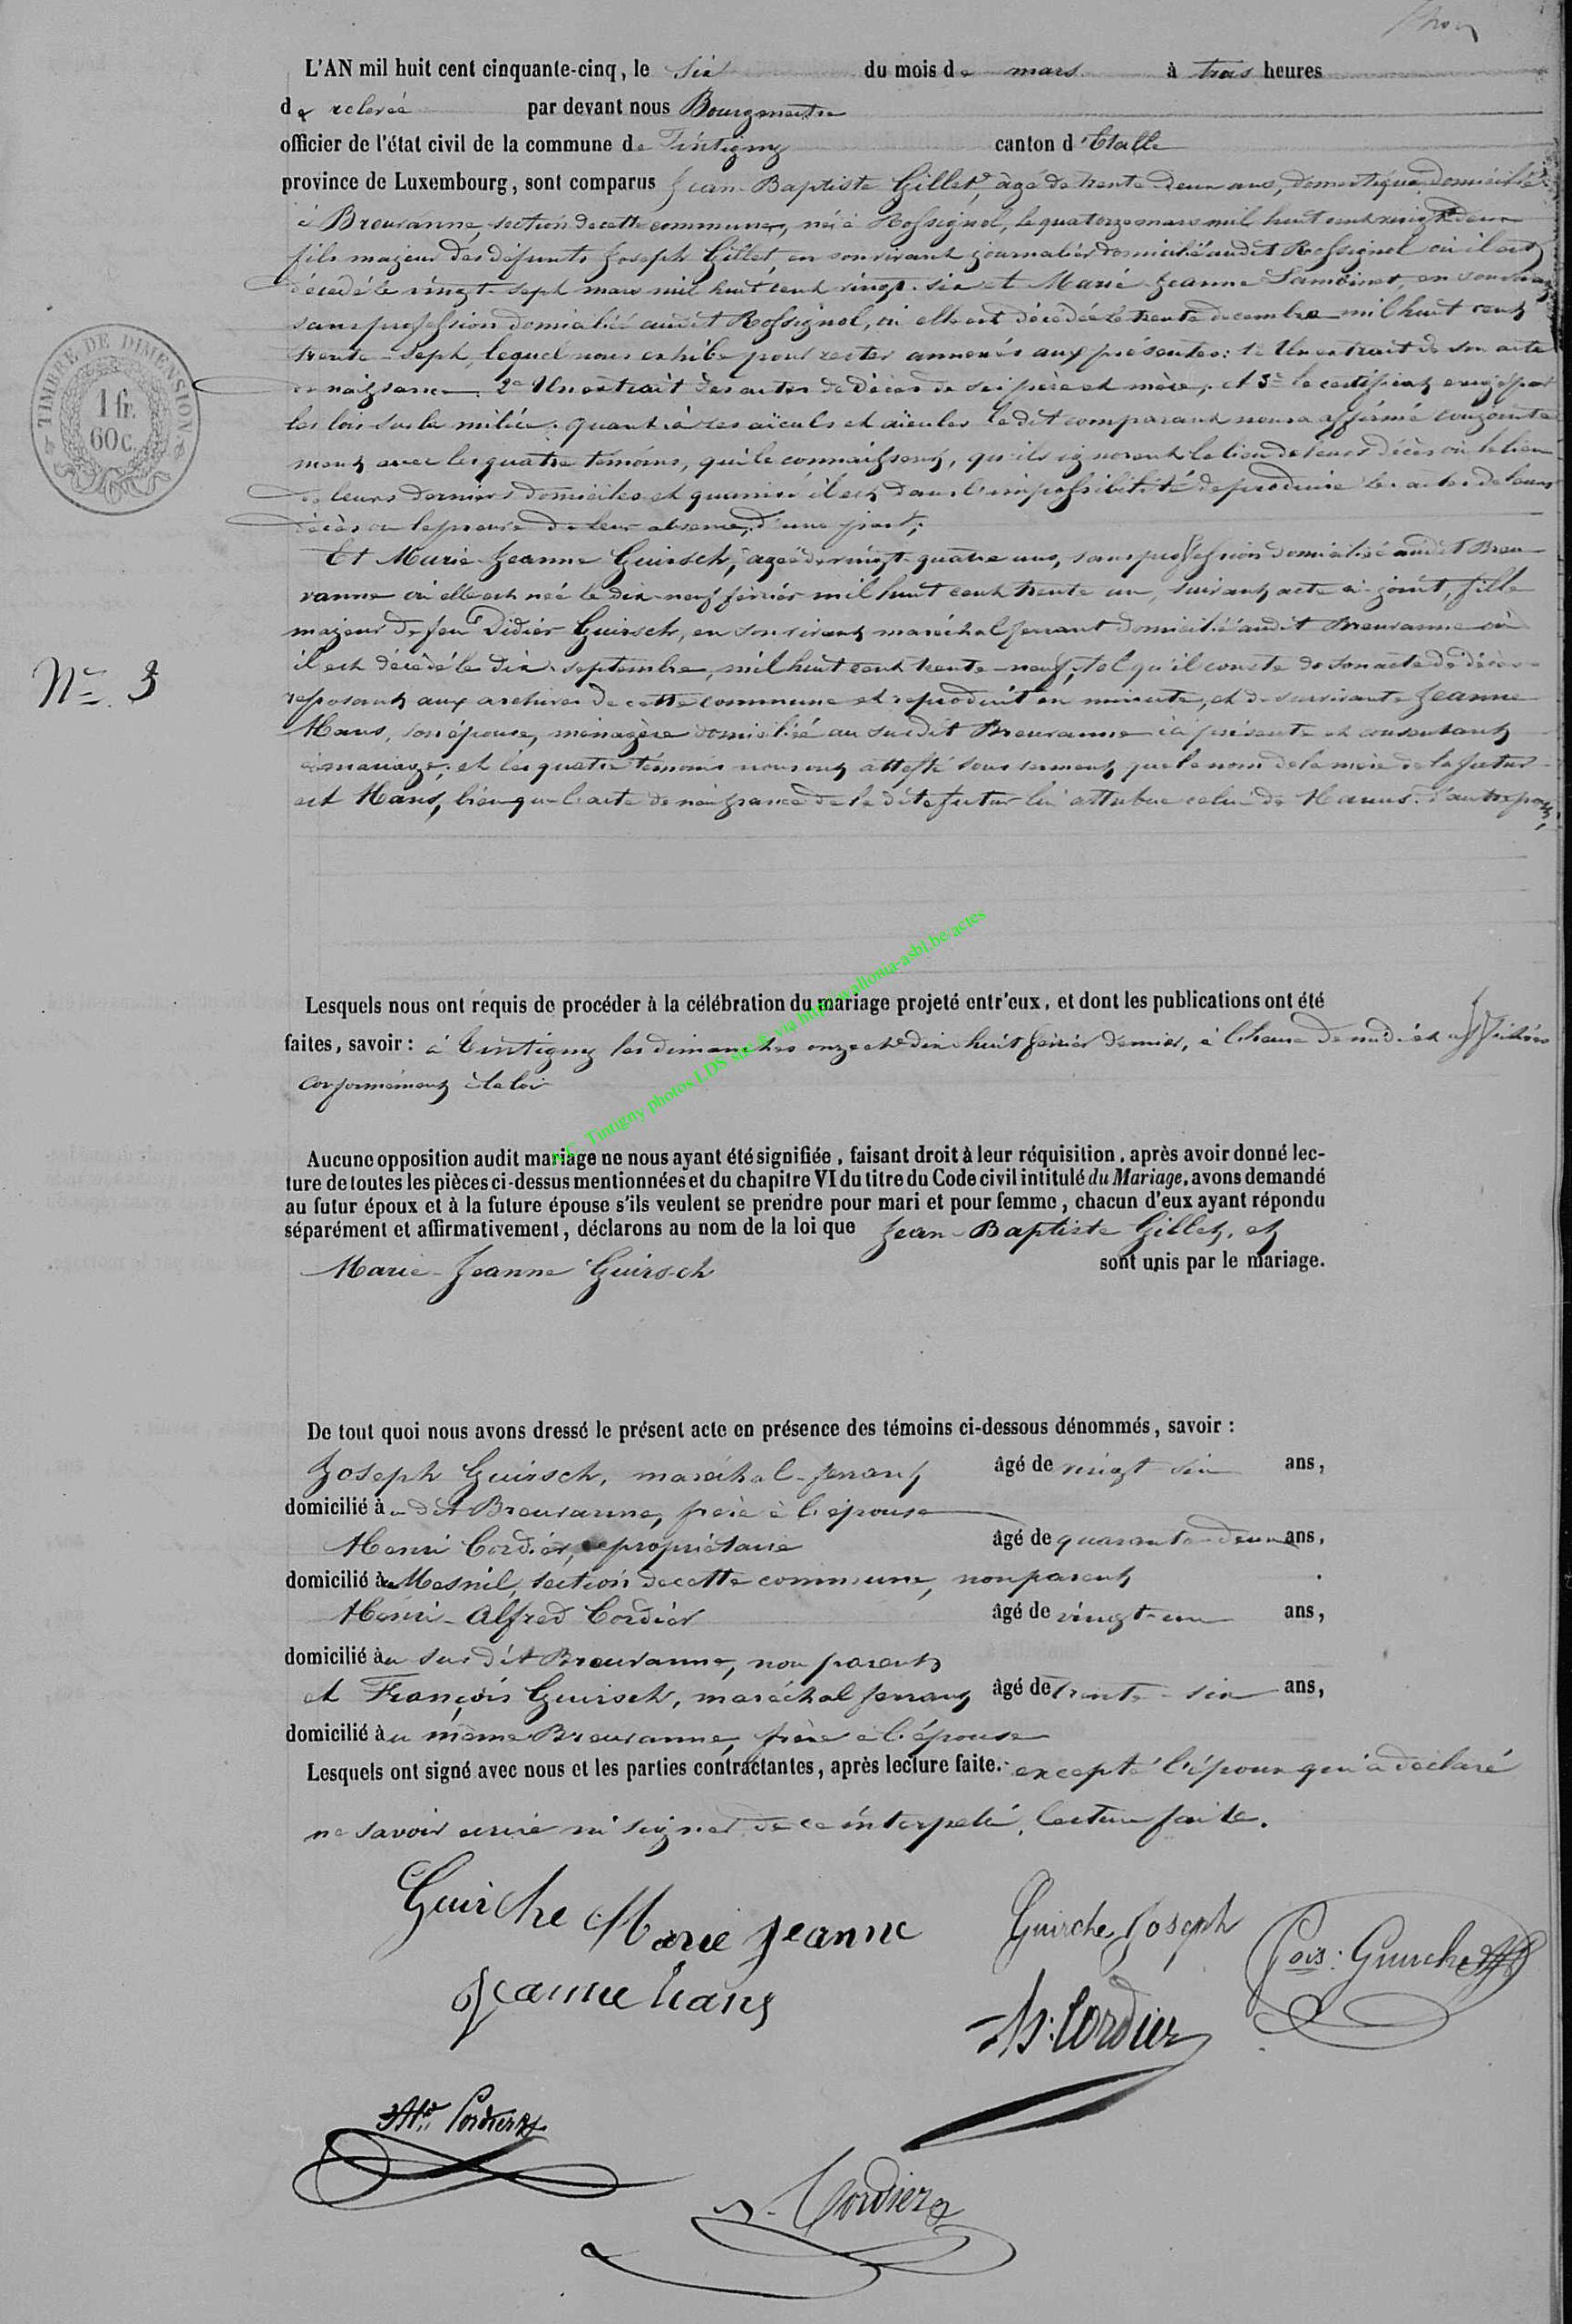 L'AN mil huit cent cinquante-cinq, le six du mois de mars à trois heures
de relevée par devant nous Bourgmestre
officier de l'état civil de la commune de Tintigny canton d'Etalle
province de Luxembourg, sont comparus Jean-Baptiste Gillet, âgé de trente deux ans, domestique, domicilié
à Breuvanne, section de cette commune, né à Rossignol, le quatorze mars mil huit cent vingt deux
fils majeur des défunts Joseph Gillet, en son vivant journalier domicilié audit Rossignol où il est
décédé le vingt-sept mars mil huit cent vingt-six et Marie-Jeanne Lambinet, en son vivant
sans profession domiciliée audit Rossignol, où elle est décédée le trente decembre mil huit cent
trente-sept, lequel nous exhibe pour rester annexés aux présentes: 1° Un extrait de son acte
de naissance. 2° Un extrait des actes de décès de ses père et mère; et 3° le certificat exigé par
les lois sur la milice; quant à ses aïeuls et aïeules le dit comparant nous a affirmé conjointe
ment avec les quatre témoins, qui le connaissent, qu'ils ignorent le lieu de leurs décès où le lieu
de leurs derniers domiciles et qu'ainsi il est dans l'impossibilité de produire les actes de leurs
décès ou la preuve de leur absence, d'une part;
Et Marie-Jeanne Guirsch, agée de vingt-quatre ans, sans profession domiciliée audit Breu
vanne où elle est née le dix-neuf février mil huit cent trente un, suivant acte ci-joint, fille
majeur de feu Didier Guirsch, en son vivant maréchal ferrant domicilié audit Breuvanne où
il est décédé le dix septembre, mil huit cent trente-neuf, tel qu'il conste de son acte de décès
reposant aux archives de cette commune et reproduit en minute, et de survivante Jeanne
Hans, son épouse, ménagère domiciliée au susdit Breuvanne ici présente et consentant
au mariage; et les quatre témoins nous ont attesté sous serment que le nom de la mère de la future
est Hans, bien que l'acte de naissance de la dite future lui attribue celui de Hanus. d'autre part;
N° 3
TIMBRE DE DIMENSION
1 fr.
60 c.
Lesquels nous ont requis de procéder à la célébration du mariage projeté entr'eux, et dont les publications ont été
faites, savoir: à Tintigny les dimanches onze et dix-huit février dernier, à l'heure de midi et affichées
conformément à la loi
A.C. Tintigny photos LDS via http://wallonia-asbl.be/actes
Aucune opposition audit mariage ne nous ayant été signifiée, faisant droit à leur réquisition, après avoir donné lec-
ture de toutes les pièces ci-dessus mentionnées et du chapitre VI du titre du Code civil intitulé du Mariage, avons demandé
au futur époux et à la future épouse s'ils veulent se prendre pour mari et pour femme, chacun d'eux ayant répondu
séparément et affirmativement, déclarons au nom de la loi que Jean-Baptiste Gillet, et
Marie-Jeanne Guirsch sont unis par le mariage.
De tout quoi nous avons dressé le présent acte en présence des témoins ci-dessous dénommés, savoir:
Joseph Guirsch, maréchal-ferrant âgé de vingt-six ans,
domicilié au dit Breuvanne, frère à l'épouse
Henri Cordier, propriétaire âgé de quarante-deux ans,
domicilié à Mesnil, section de cette commune, non parent
Henri-Alfred Cordier âgé de vingt-un ans,
domicilié au sus dit Breuvanne, non parent
et François Guirsch, maréchal ferrant âgé de trente-six ans,
domicilié au même Breuvanne, frère à l'épouse
Lesquels ont signé avec nous et les parties contractantes, après lecture faite. excepté l'époux qui a déclaré
ne savoir ecrire ni signer de ce interpelé, lecture faite.
Guirche Marie Jeanne
Guirche Joseph
Fois: Guirche
Jeanne hans
H: Cordier
Cordier
Cordier